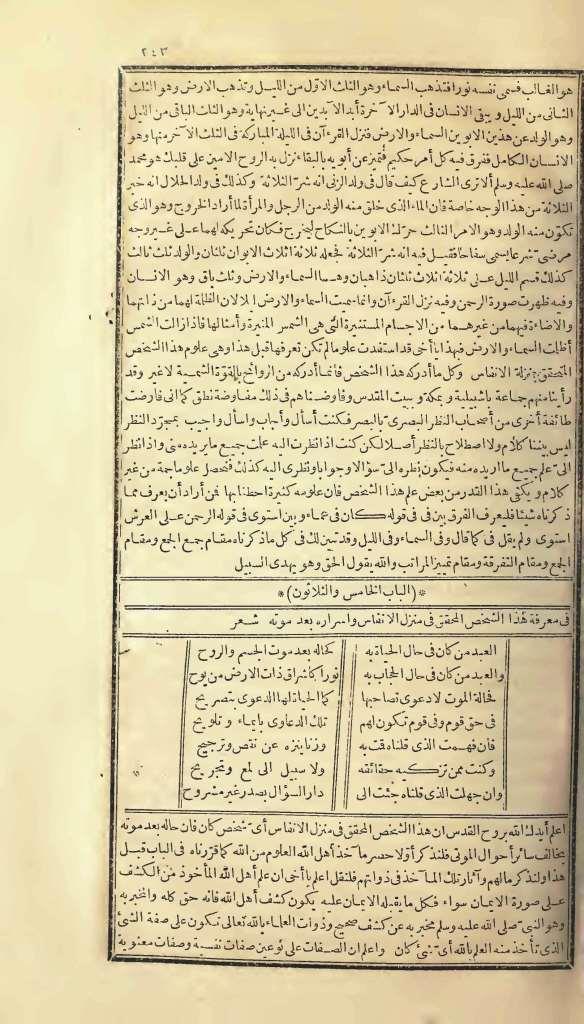 ٢٠٣
هو الغالب فسمى نفسه نورا فتذهب السماء وهو الثلث الاول من الليل وتذهب الارض وهو الثلث
الثانى من الليل ويبقى الانسان فى الدار الآخرة أبد الآبدين الى غير نهاية وهو الثلث الباقى من الليل
وهو الولد عن هذين الابوين السماء والارض فنزل القرءآن فى الليلة المباركة فى الثلث الآخر منها وهو
الانسان الكامل ففرق فيه كل أمر حكيم فتميز عن أبويه بالبقاء نزل به الروح الامين على قلبك هو محمد
صلى الله عليه وسلم ألا ترى الشارع كيف قال فى ولد الزنى انه شر الثلاثة وكذلك فى ولد الحلال انه خير
الثلاثة من هذا الوجه خاصة فان الماء الذى خلق منه الولد من الرجل والمرأة لما أراد الخروج وهو الذى
تكوّن منه الولد وهو الامر الثالث حرّك الابوين بالنكاح ليخرج فكان تحريكه لهما على غير وجه
مرضى شرعا يسمى سفاحا فقيل فيه انه شر الثلاثة فجعله ثلاثة اثلاث الابوان ثلثان والولد ثلث ثالث
كذلك قسم الليل على ثلاثة اثلاث ثلثان ذاهبان وهما السماء والارض وثلث باق وهو الانسان
وفيه ظهرت صورة الرحمن وفيه نزل القرءآن وانما سميت السماء والارض الليل لان الظلمة لهما من ذاتهما
والاضاءة فيهما من غيرهما من الاجسام المستنيرة التى هى الشمس المنيرة وأمثالها فاذا زالت الشمس
أظلمت السماء والارض فهذا يا أخى قد استفدت علوما لم تكن تعرفها قبل هذا وهى علوم هذا الشخص
المتحقق بمنزلة الانفاس وكل ما أدركه هذا الشخص فانما أدركه من الروائح بالقوّة الشمية لا غير وقد
رأينا منهم جماعة باشبيلية وبمكة وبيت المقدس وفاوضناهم فى ذلك مفاوضة نطق كما انى فاوضت
طائفة أخرى من أصحاب النظر البصرى بالبصر فكنت أسأل وأجاب وأسأل واجيب بمجرّد النظر
ليس بيننا كلام ولا اصطلاح بالنظر أصلا لكن كنت اذا نظرت اليه علمت جميع ما يريده منى واذا نظر
الىّ علم جميع ما اريده منه فيكون نظره الى سؤالا وجوابا ونظرى اليه كذلك فنحصل علوما جمة من غير
كلام ويكفى هذا القدر من بعض علم هذا الشخص فان علومه كثيرة احطنا بها فمن أراد أن يعرف مما
ذكرناه شيئا فليعرف الفرق بين فى فى قوله كان فى عماء وبين استوى فى قوله الرحمن على العرش
استوى ولم يقل فى كما قال وفى السماء وفى الليل وقد تبين لك فى كل ما ذكرناه مقام جمع الجمع ومقام
الجمع ومقام التفرقة ومقام تمييز المراتب والله يقول الحق وهو يهدى السبيل
*(الباب الخامس والثلاثون)*
فى معرفة هذا الشخص المحقق فى منزل الانفاس واسراره بعد موته شعر
العبد من كان فى حال الحياة به كحاله بعد موت الجسم والروح
والعبد من كان فى حال الحجاب به نورا كاشراق ذات الارض من يوح
فحالة الموت لا دعوى تصاحبها كما الحياة لها الدعوى بتصريح
فى حق قوم وفى قوم تكون لهم تلك الدعاوى بايماء وتلويح
فان فهمت الذى قلناه قمت به وزنا ينزه عن نقص وترجيح
وكنت ممن تزكيه حقائقه ولا سبيل الى لمع وتجريح
وان جهلت الذى قلناه جئت الى دار السؤال بصدر غير مشروح
اعلم أيدك الله بروح القدس ان هذا الشخص المحقق فى منزل الانفاس أى شخص كان فان حاله بعد موته
يخالف سائر أحوال الموتى فلنذكر أولا حصر مآخذ أهل الله العلوم من الله كما قررناه فى الباب قبل
هذا ولنذكر مالهم وآثار تلك المآخذ فى ذواتهم فلنقل اعلم يا أخى ان علم أهل الله المأخوذ من الكشف
على صورة الايمان سواء فكل ما يقبله الايمان عليه يكون كشف أهل الله فانه حق كله والمخبر به
وهو النبىّ صلى الله عليه وسلم مخبر به عن كشف صحيح وذوات العلماء بالله تعالى تكون على صفة الشئ
الذى تأخذ منه العلم بالله أى شئ كان واعلم ان الصفات على نوعين صفات نفسية وصفات معنوية